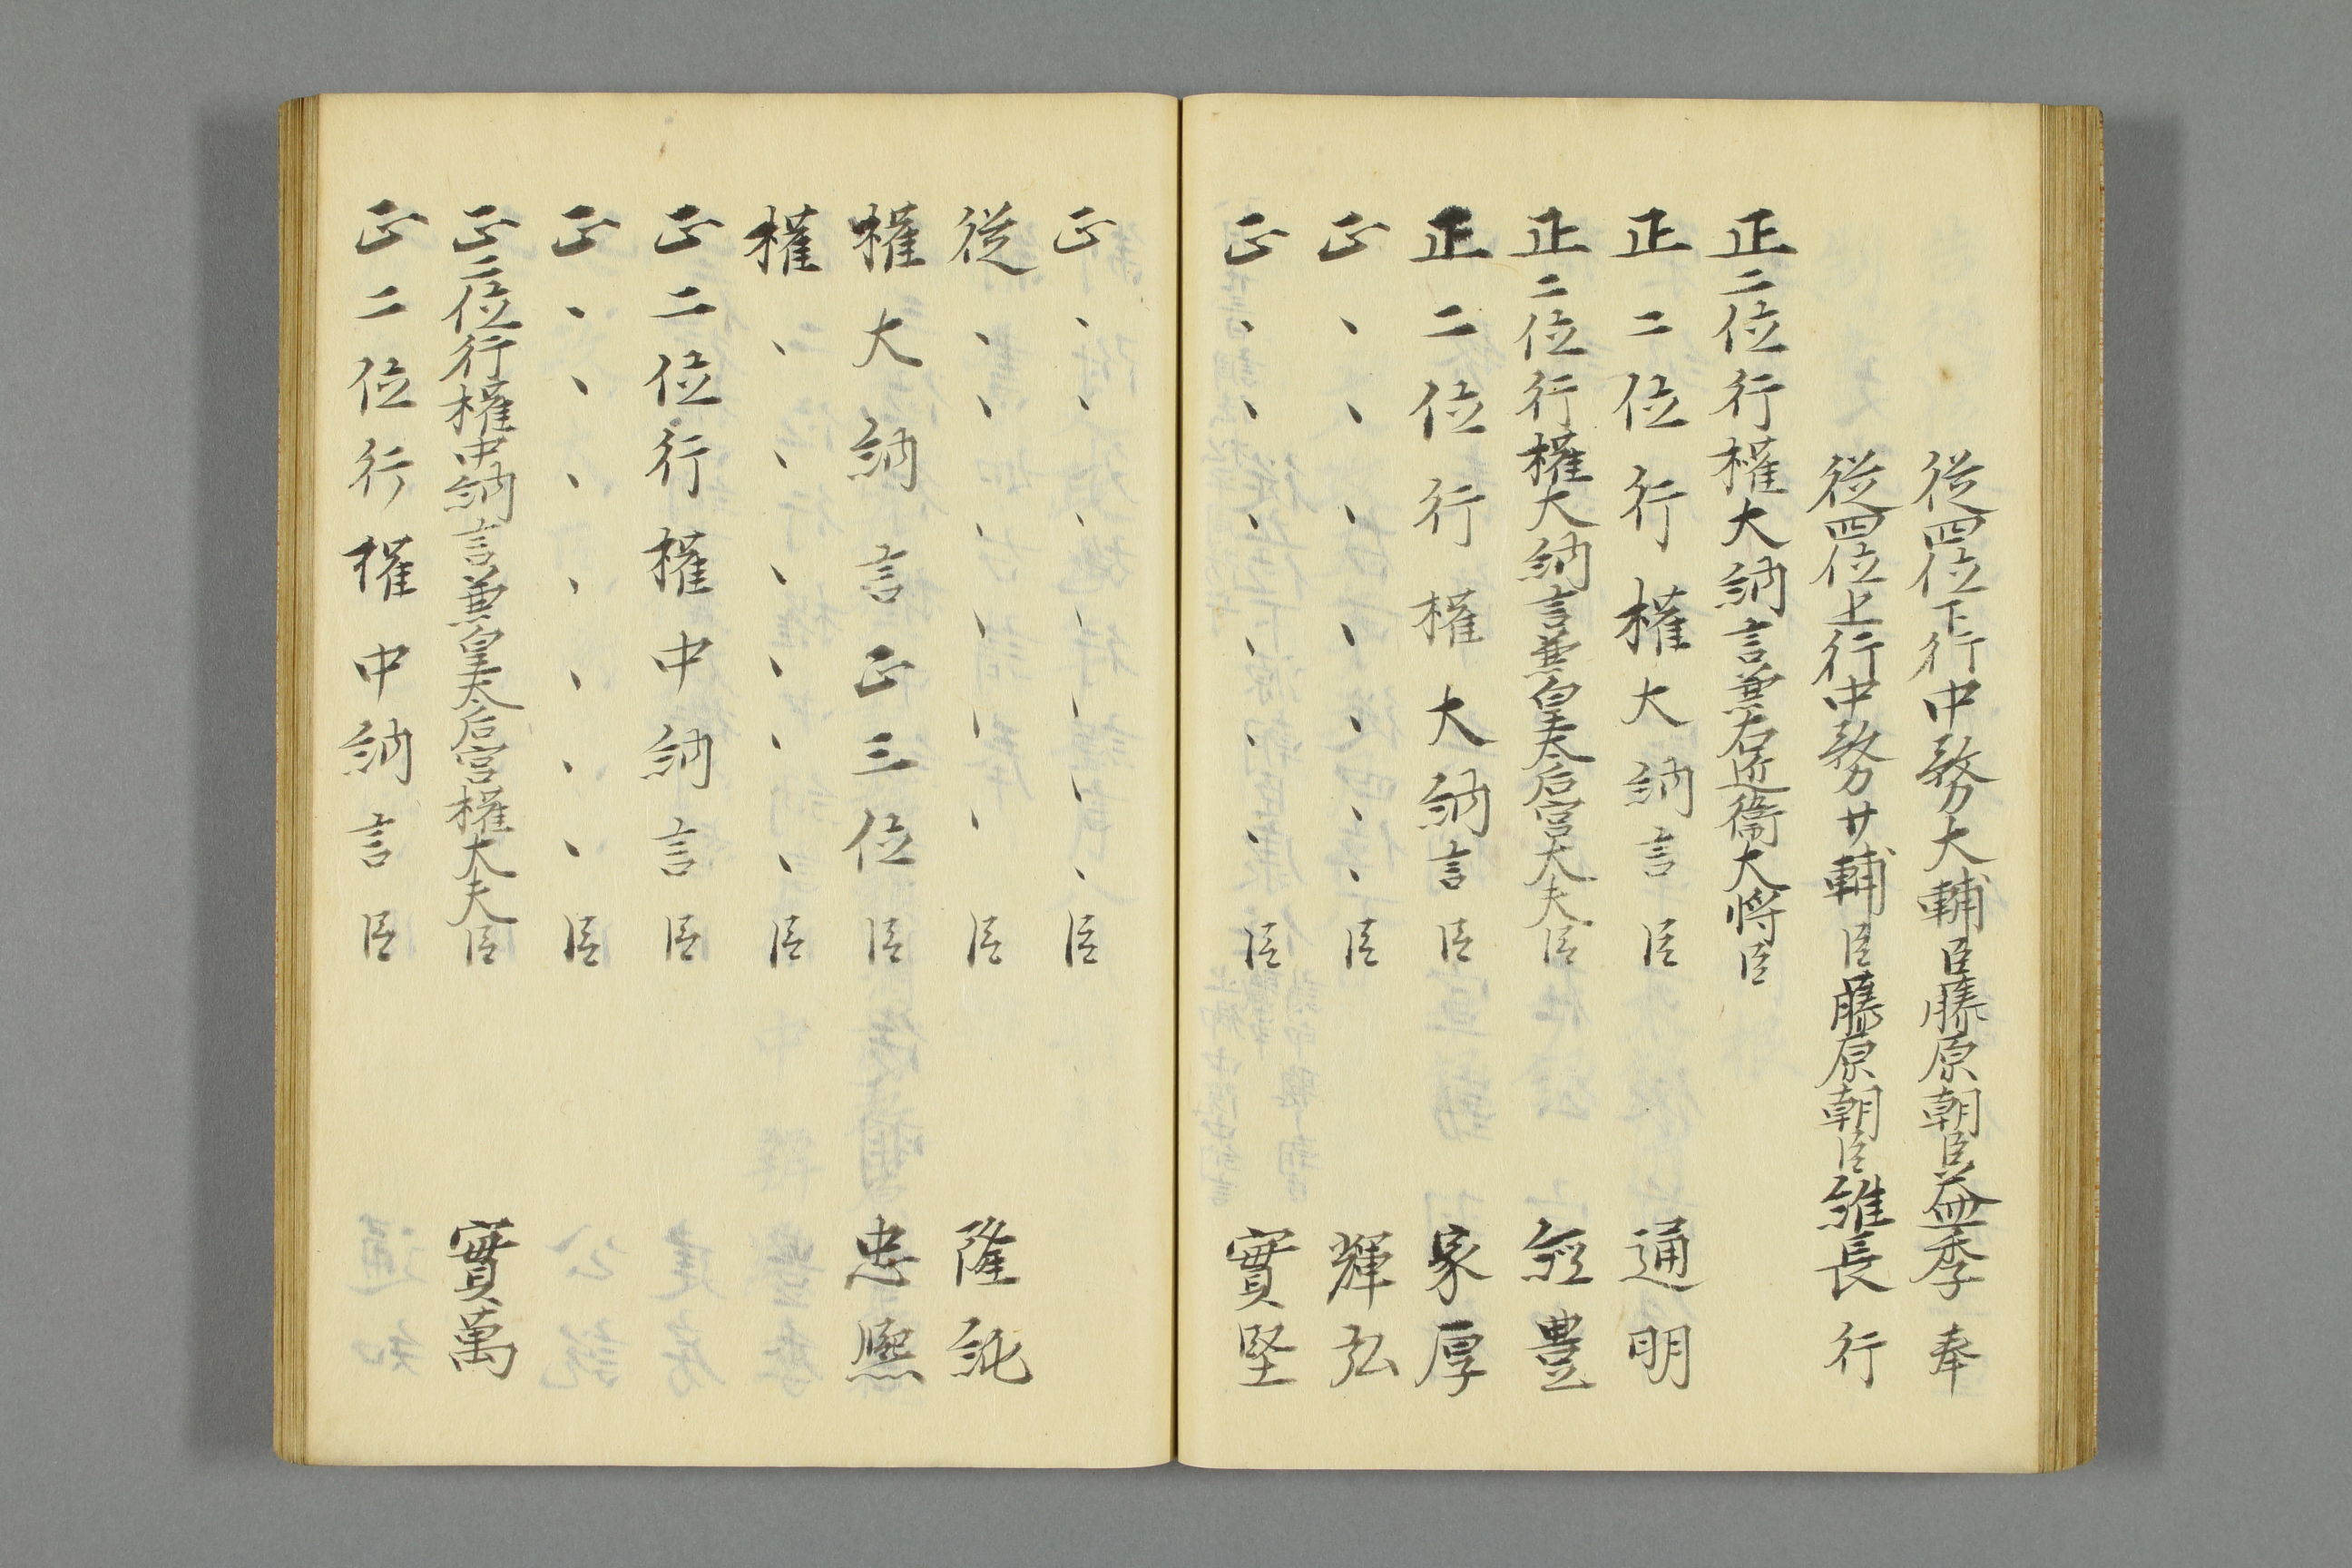 従四位下行中務大輔臣藤原朝臣益季奉
従四位上行中務少輔臣藤原朝臣維長行
正二位行權大納言兼右近衛大将臣
正二位行權大納言臣 通明
正二位行權大納言兼皇太后宮大夫臣 經豊
正二位行權大納言臣 家厚
正、、、、、、臣 輝弘
正、、、、、、臣 實堅
正、、、、、、、臣
従、、、、、、臣 隆純
權大納言正三位臣 忠熙
權、、、、、、臣
正二位行權中納言臣
正、、、、、、、臣
正二位行權中納言兼皇太后宮權大夫臣 實萬
正二位行權中納言臣